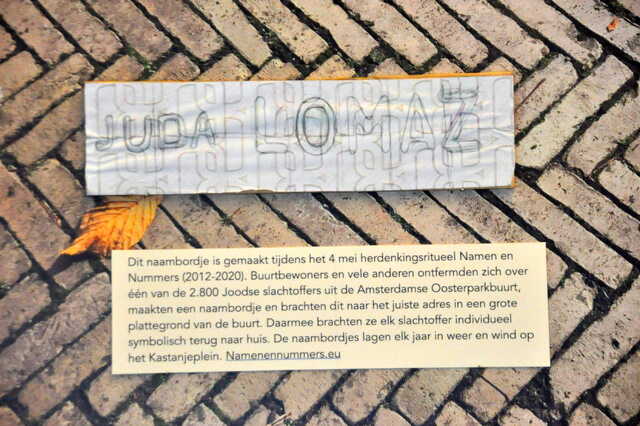 JUDA LOMAZ
Dit naambordje is gemaakt tijdens het 4 mei herdenkingsritueel Namen en
Nummers (2012-2020). Buurtbewoners en vele anderen ontfermden zich over
één van de 2.800 Joodse slachtoffers uit de Amsterdamse Oosterparkbuurt,
maakten een naambordje en brachten dit naar het juiste adres in een grote
plattegrond van de buurt. Daarmee brachten ze elk slachtoffer individueel
symbolisch terug naar huis. De naambordjes lagen elk jaar in weer en wind op
het Kastanjeplein. Namenennummers.eu